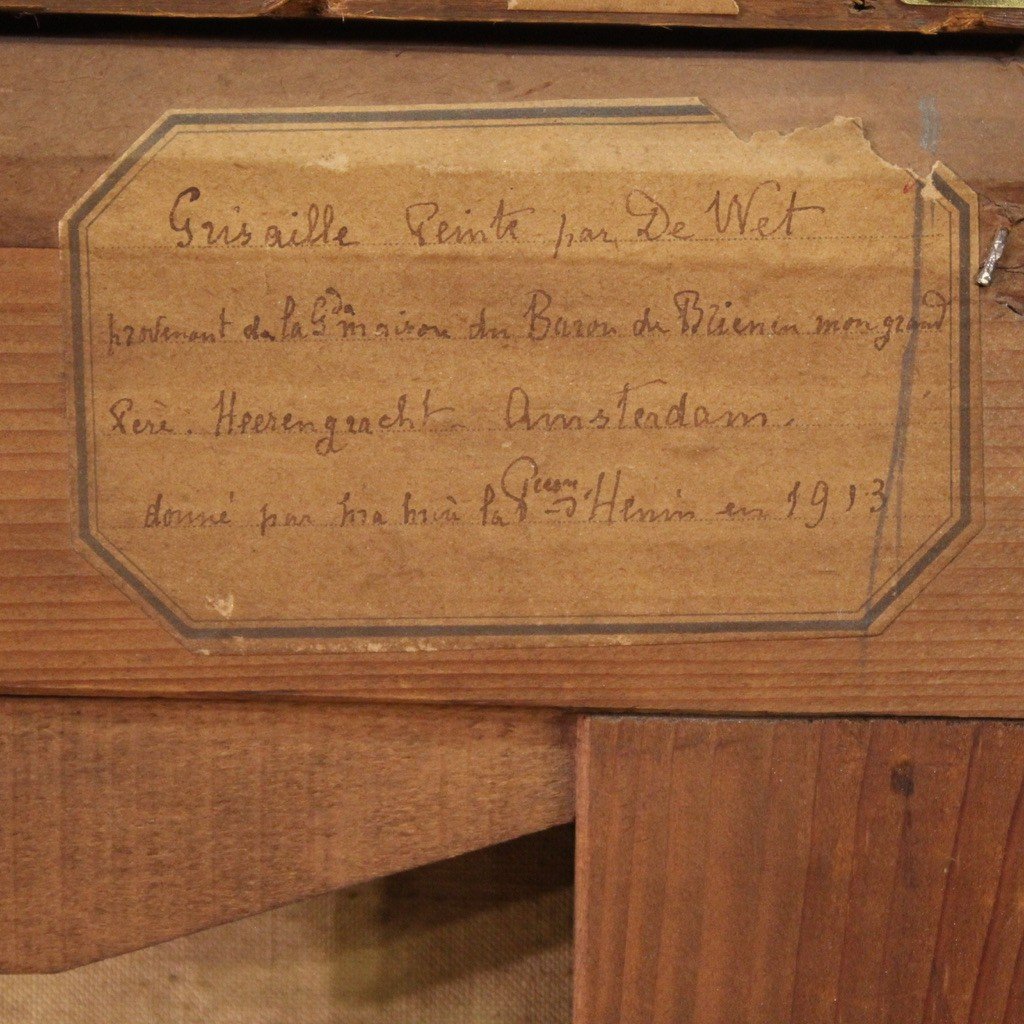 Grisaille Peinte par De Wet
provenant de la Gde maison du Baron de Brienen mon grand
Père. Heerengracht. Amsterdam.
donné par ma mère la Pcesse d'Henin en 1913